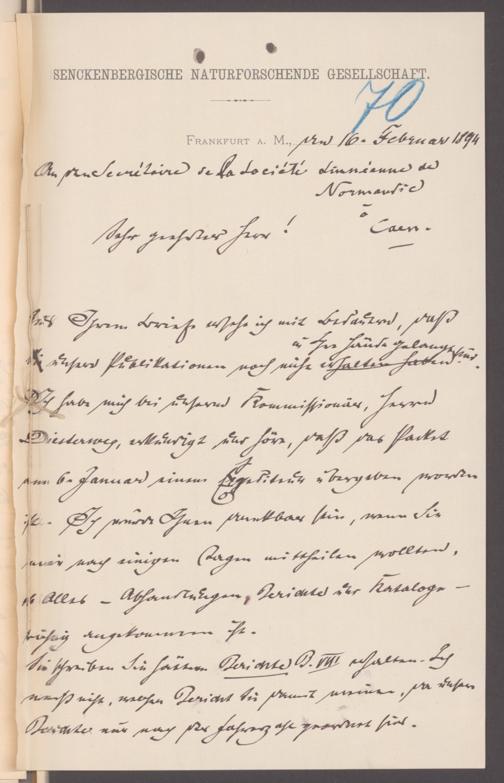 SENCKENBERGISCHE NATURFORSCHENDE GESELLSCHAFT.
70
FRANKFURT A. M., den 16. Februar 1894
An den Secrétaire de la Société Linnéenne de
Normandie
à
Caen.
Sehr geehrter Herr!
Aus Ihrem Briefe ersehe ich mit Bedauern, daß
in Ihre Hände gelangt sind.
unsere Publikationen noch nicht erhalten haben
Ich habe mich bei unserm Kommissionär, Herrn
Diesterweg, erkundigt und höre, daß das Packet
am 6. Januar einem Spediteur übergeben worden
ist. Ich würde Ihnen dankbar sein, wenn Sie
mir nach einigen Tagen mittheilen wollten,
ob Alles – Abhandlungen, Berichte und Kataloge –
richtig angekommen ist.
Sie schreiben Sie hätten Berichte B. VIII erhalten. Ich
weiß nicht, welchen Bericht Sie damit meinen, da unsere
Berichte nur nach der Jahreszahl geordnet sind.